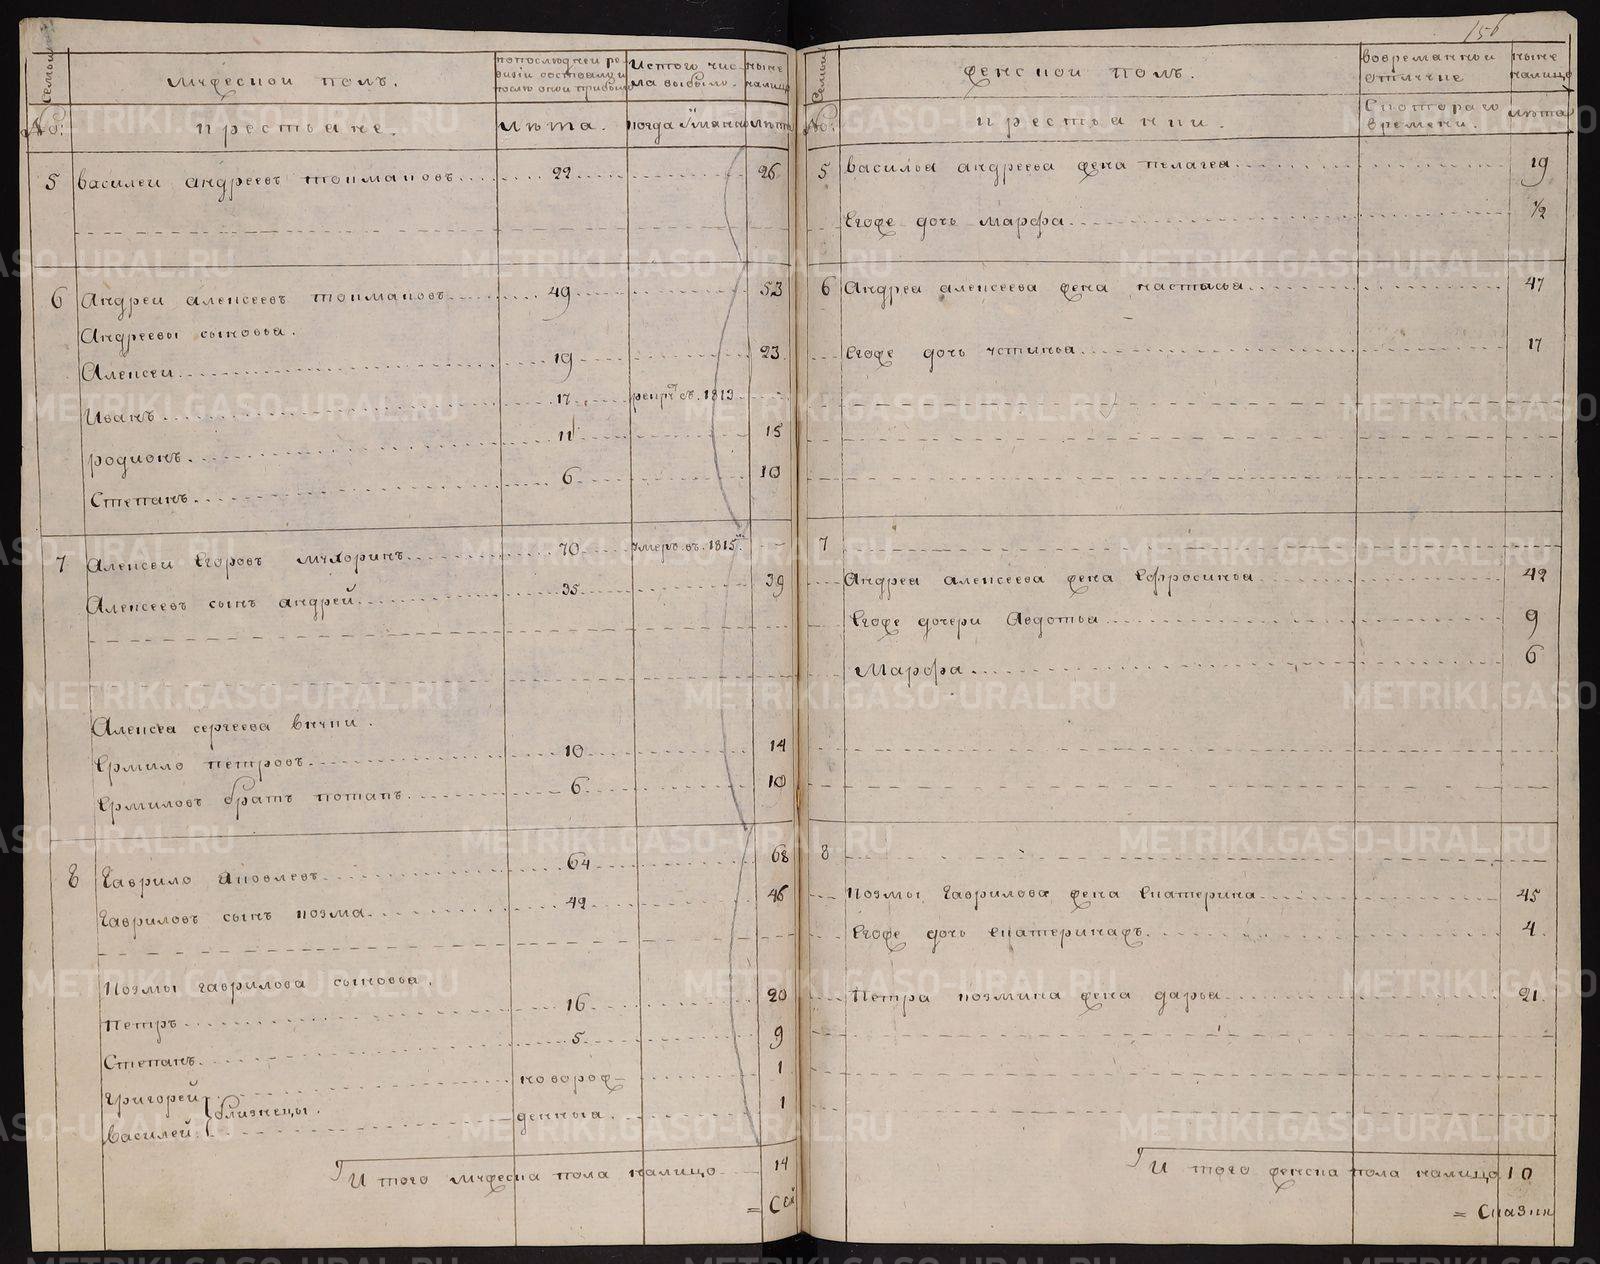 156
Семьи
мужескои полъ.
попослюднеи ре-
визіи состояло и
послю онои прибыло
Истого чис-
ла выбыло.
ныне
налицо
№:
крестьяне.
люта.
когда Имянно
люта
5 василеи андреевъ токмаковъ 22 26
6 Андреи алексеевъ токмаковъ 49 53
Андреевы сыновья.
Алексеи 19 23
Иванъ 17 рекрутъ въ 1813
родионъ 11 15
Степанъ 6 10
7 Алексеи Егоровъ мухоринъ 70 умеръ въ 1815м
Алексеевъ сынъ андрей 35 39
Алексея сергеева внуки.
Ермило петровъ 10 14
Ермиловъ братъ потапъ 6 10
8 Гаврило яковлевъ 64 68
Гавриловъ сынъ козма 42 46
Козмы гаврилова сыновья.
Петръ 16 20
Степанъ 5 9
Григорей новорож- 1
василей близнецы. денныя. 1
И того мужеска пола налицо 14
= Сей
Семьи
женскои полъ.
вовременнои
отлучке
ныне
налицо
№:
крестьянки.
Скотораго
времени.
люта
5 василья андреева жена пелагея 19
Егоже дочь марфа ½
6 Андрея алексеева жена настасья 47
Егоже дочь устинья 17
7
Андрея алексеева жена Ефросинья 42
Егоже дочери Авдотья 9
Марфа 6
8
Козмы Гаврилова жена Екатерина 45
Егоже дочь екатеринажъ 4.
Петра козмина жена дарья 21.
И того женска пола налицо 10
= Сказки
METRIKI.GASO-URAL.RU